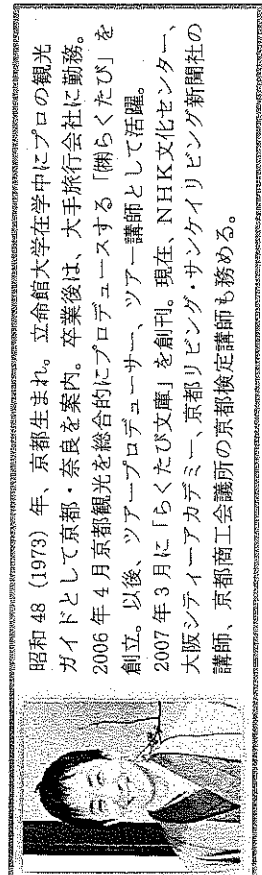 昭和 48（1973）年、京都生まれ。立命館大学在学中にプロの観光
ガイドとして京都・奈良を案内。卒業後は、大手旅行会社に勤務。
2006 年 4 月京都観光を総合的にプロデュースする「㈱らくたび」を
創立。以後、ツアープロデューサー、ツアー講師として活躍。
2007 年 3 月に「らくたび文庫」を創刊。現在、NHK文化センター、
大阪シティーアカデミー、京都リビング・サンケイリビング新聞社の
講師、京都商工会議所の京都検定講師も務める。